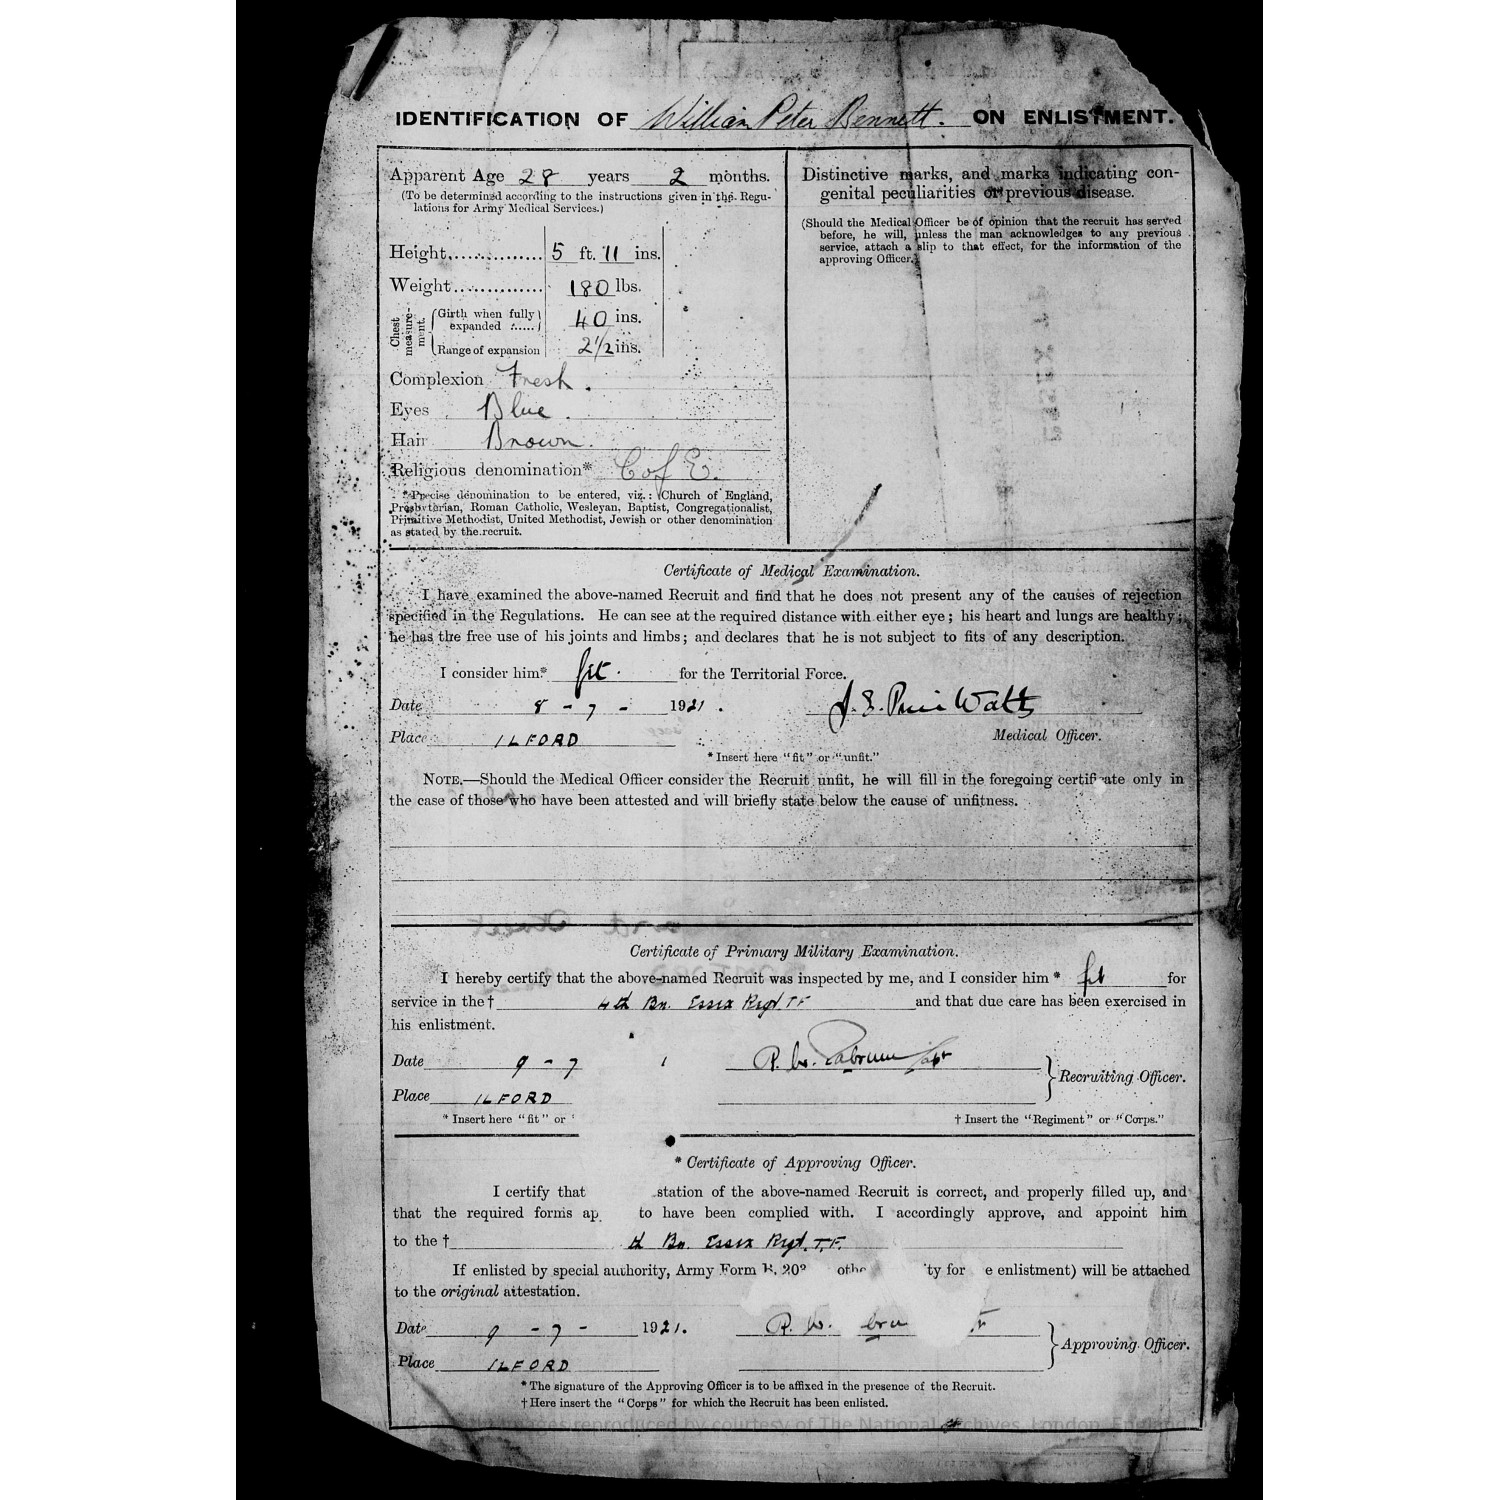 IDENTIFICATION OF William Peter Bennett. ON ENLISTMENT.
Apparent Age 28 years 2 months.
(To be determined according to the instructions given in the Regu-
lations for Army Medical Services.)
Height 5 ft. 11 ins.
Weight 180 lbs.
Chest measure-ment.
Girth when fully expanded 40 ins.
Range of expansion 2 1/2 ins.
Complexion Fresh.
Eyes Blue.
Hair Brown.
Religious denomination* C of E.
*Precise denomination to be entered, viz.: Church of England,
Presbyterian, Roman Catholic, Wesleyan, Baptist, Congregationalist,
Primitive Methodist, United Methodist, Jewish or other denomination
as stated by the recruit.
Distinctive marks, and marks indicating con-
genital peculiarities or previous disease.
(Should the Medical Officer be of opinion that the recruit has served
before, he will, unless the man acknowledges to any previous
service, attach a slip to that effect, for the information of the
approving Officer.)
Certificate of Medical Examination.
I have examined the above-named Recruit and find that he does not present any of the causes of rejection
specified in the Regulations. He can see at the required distance with either eye; his heart and lungs are healthy;
he has the free use of his joints and limbs; and declares that he is not subject to fits of any description.
I consider him* fit. for the Territorial Force.
Date 8 - 7 - 1921.
J. E. Watts
Place ILFORD
Medical Officer.
* Insert here "fit" or "unfit."
NOTE.—Should the Medical Officer consider the Recruit unfit, he will fill in the foregoing certificate only in
the case of those who have been attested and will briefly state below the cause of unfitness.
Certificate of Primary Military Examination.
I hereby certify that the above-named Recruit was inspected by me, and I consider him * fit for
service in the † 4th Bn. Essex Regt. TF and that due care has been exercised in
his enlistment.
Date 9 - 7 1
R. W. Capt
Recruiting Officer.
Place ILFORD
* Insert here "fit" or
† Insert the "Regiment" or "Corps."
* Certificate of Approving Officer.
I certify that station of the above-named Recruit is correct, and properly filled up, and
that the required forms ap to have been complied with. I accordingly approve, and appoint him
to the † th Bn. Essex Regt. T.F.
If enlisted by special authority, Army Form B. 20 othe ity for e enlistment) will be attached
to the original attestation.
Date 9 - 7 - 1921.
R. W.
Approving Officer.
Place ILFORD
* The signature of the Approving Officer is to be affixed in the presence of the Recruit.
† Here insert the "Corps" for which the Recruit has been enlisted.
images reproduced by courtesy of The National Archives, London, England